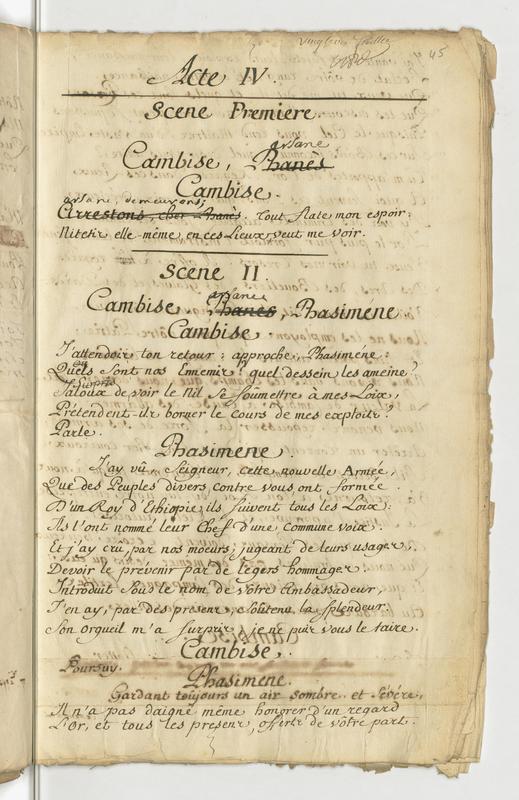 vingt-cinq feuillet
45
Acte IV.
Scene Premiere.
arsane
Cambise, Phanès
Cambise.
arsane, demeurons;
Arrestons, cher Phanès. Tout flate mon espoir:
Nitetis elle-même, en ces Lieux, veut me voir.
Scene II
arsane
Cambise, Phanès, Phasiméne
Cambise.
J'attendois ton retour: approche, Phasimene:
Quels sont nos Ennemis? quel dessein les ameine?
Surpris
Jaloux de voir le Nil se soûmettre à mes Loix,
Prétendent-ils borner le cours de mes exploits?
Parle.
Phasimene.
J'ay vû, Seigneur, cette nouvelle Armée,
Que des Peuples divers contre vous ont formée.
D'un Roy d'Ethiopie ils suivent tous les Loix:
Ils l'ont nommé leur Chef d'une commune voix.
Et j'ay crû, par nos moeurs, jugeant de leurs usages,
Devoir le prévenir par de légers hommages
Introduit sous le nom de votre Ambassadeur,
J'en ay, par des presens, soutenu la splendeur.
Son orgueil m'a surpris, je ne puis vous le taire.
Cambise.
Poursuy.
Phasimene.
Gardant toujours un air sombre et sévére,
Il n'a pas daigné même honorer d'un regard
L'Or, et tous les presens, offerts de votre part.